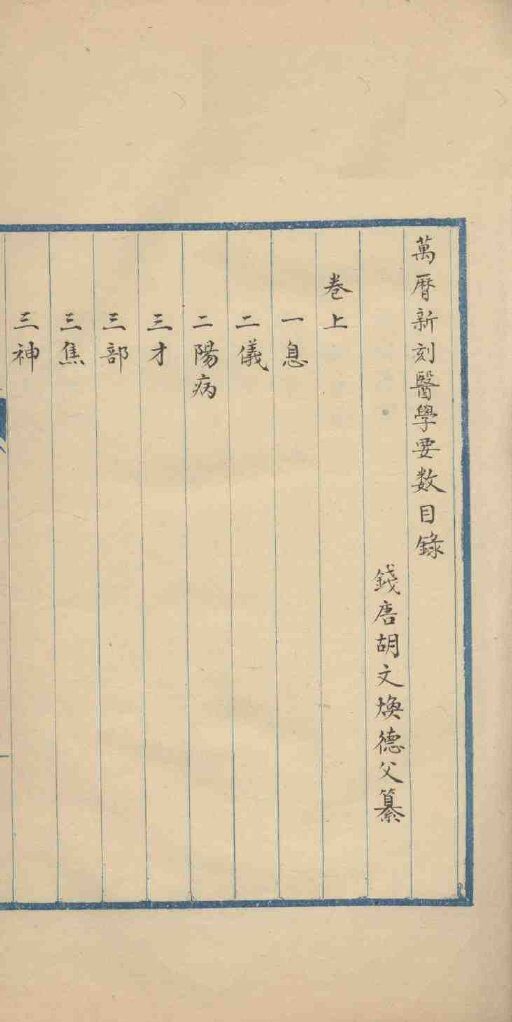 萬曆新刻醫學要数目錄
錢唐胡文煥德父纂
卷上
一息
二儀
二陽病
三才
三部
三焦
三神